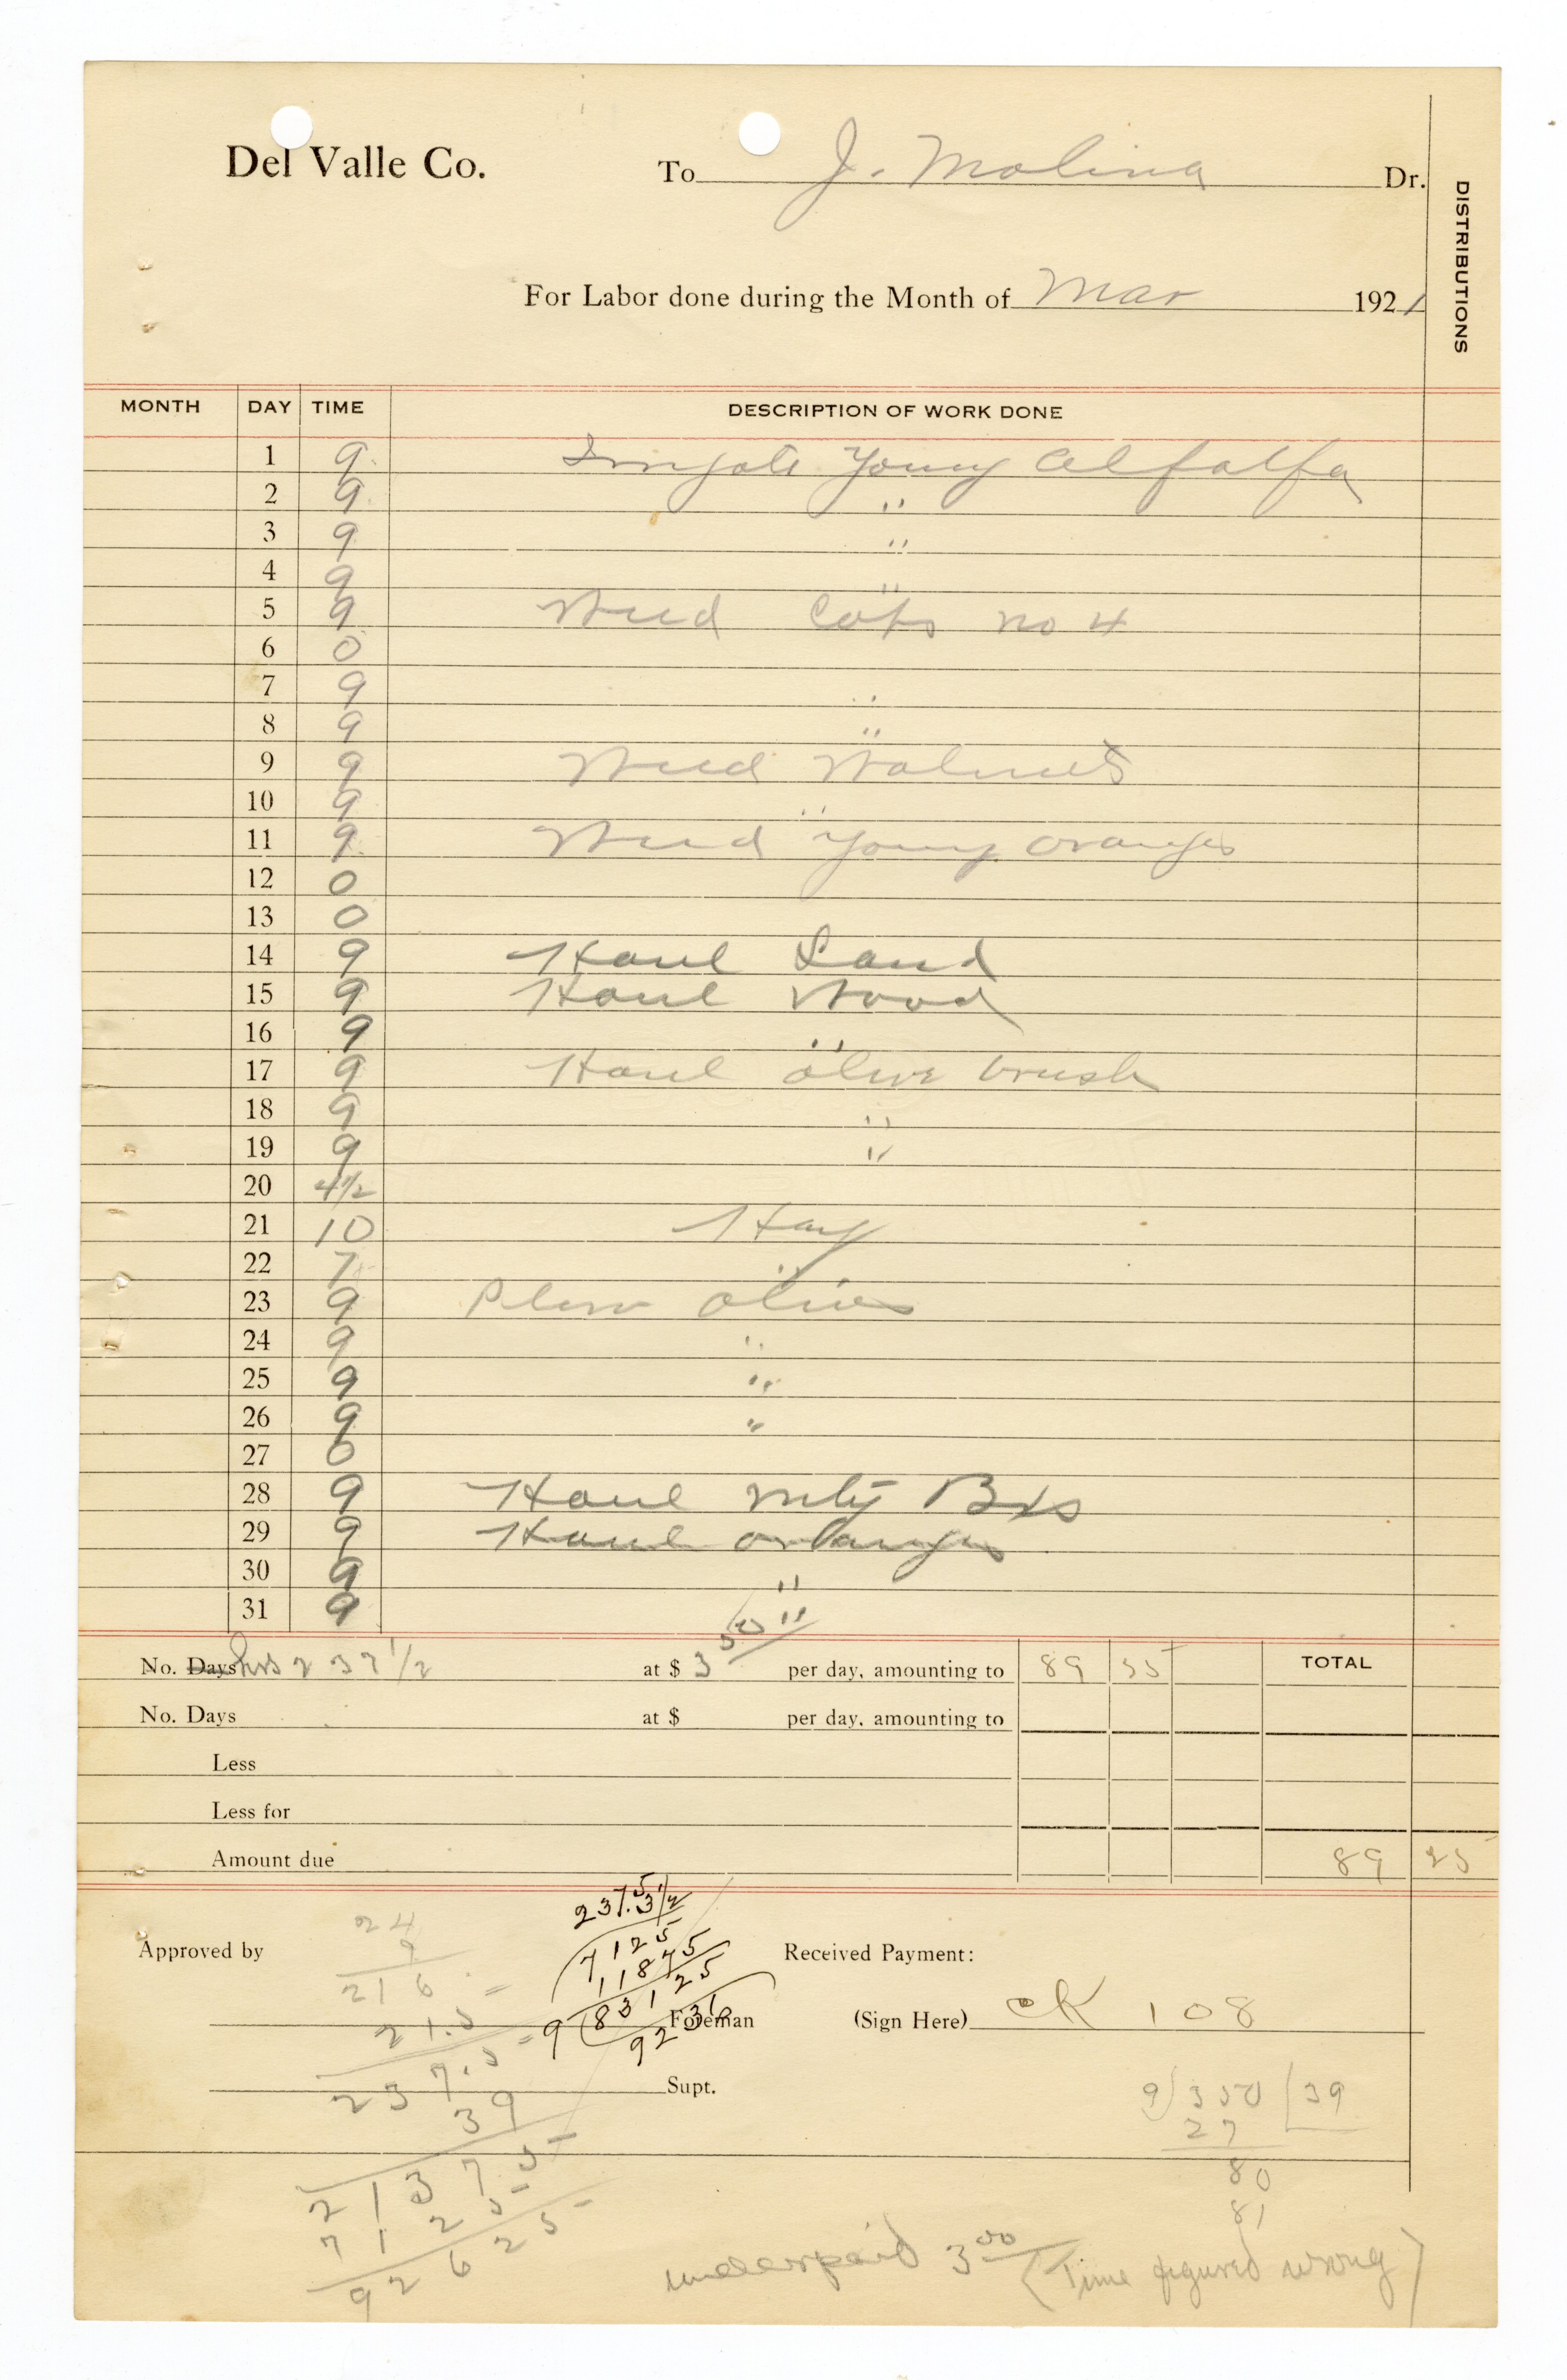 Del Valle Co. To J. Molina Dr.
DISTRIBUTIONS
For Labor done during the Month of Mar 1921
MONTH DAY TIME DESCRIPTION OF WORK DONE
1 9 Irrigate Young Alfalfa
2 9 "
3 9 "
4 9 "
5 9 Weed Cots no 4
6 0
7 9 "
8 9 "
9 9 Weed Walnuts
10 9 "
11 9 Weed Young oranges
12 0
13 0
14 9 Haul Sand
15 9 Haul Wood
16 9 "
17 9 Haul olive brush
18 9 "
19 9 "
20 4 1/2
21 10 Hay
22 7 "
23 9 Plow olives
24 9 "
25 9 "
26 9 "
27 0
28 9 Haul mty Bxs
29 9 Haul oranges
30 9 "
31 9 "
No. Days hrs 237 1/2 at $ 3 50 per day, amounting to 89 55 TOTAL
No. Days at $ per day, amounting to
Less
Less for
Amount due 89 25
24
9
216
21.5
237.5
39
21375
7125
92625
237.5
3 1/2
7125
11875
9 83125
9231
Approved by
Foreman
Supt.
Received Payment:
(Sign Here) CK 108
9) 350 39
27
80
81
underpaid 3 00 (Time figured wrong)